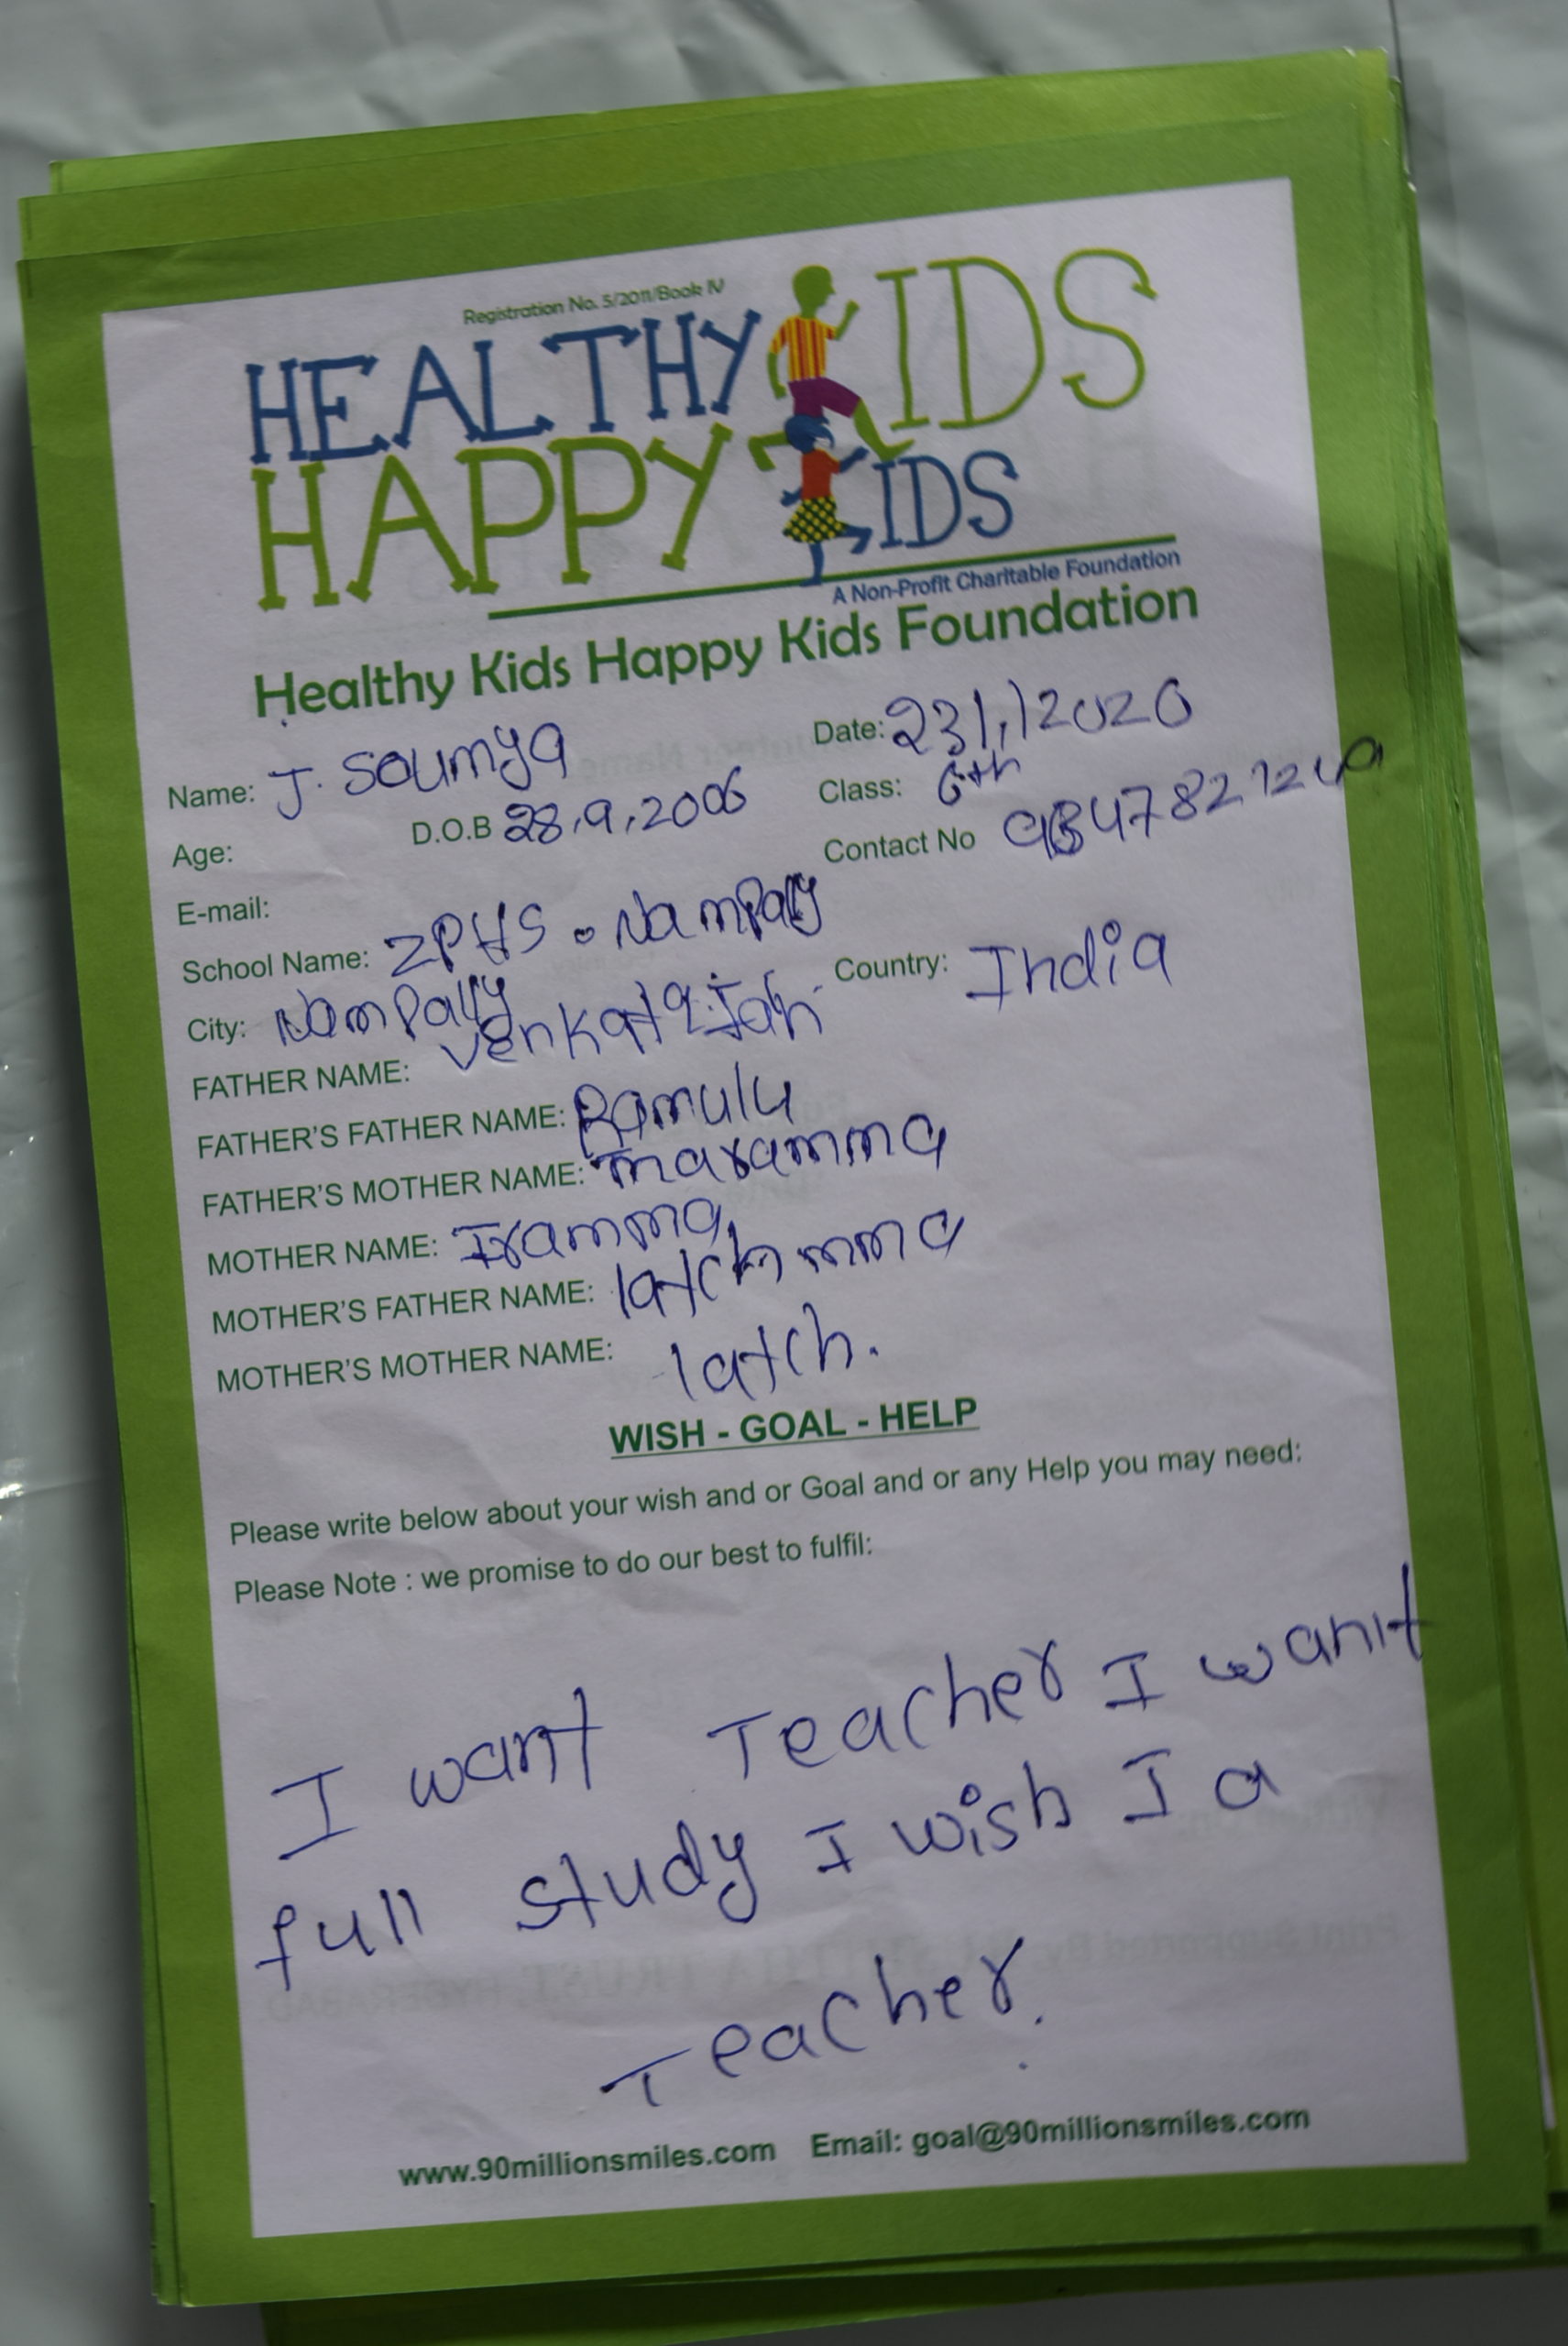 Registration No. 5/2011/Book IV
HEALTHY KIDS
HAPPY KIDS
A Non-Profit Charitable Foundation
Healthy Kids Happy Kids Foundation
Name: J. Soumya Date: 23/1/2020
Age: D.O.B 28.9.2006 Class: 6th
E-mail: Contact No
School Name: ZPHS. Nampally
City: Nampally Country: India
FATHER NAME: Venkataiah
FATHER'S FATHER NAME: Ramulu
FATHER'S MOTHER NAME: maramma
MOTHER NAME: Iramma
MOTHER'S FATHER NAME: latchmma
MOTHER'S MOTHER NAME: latch.
WISH - GOAL - HELP
Please write below about your wish and or Goal and or any Help you may need:
Please Note : we promise to do our best to fulfil:
I want Teacher I want
full study I wish I a
Teacher.
www.90millionsmiles.com Email: goal@90millionsmiles.com